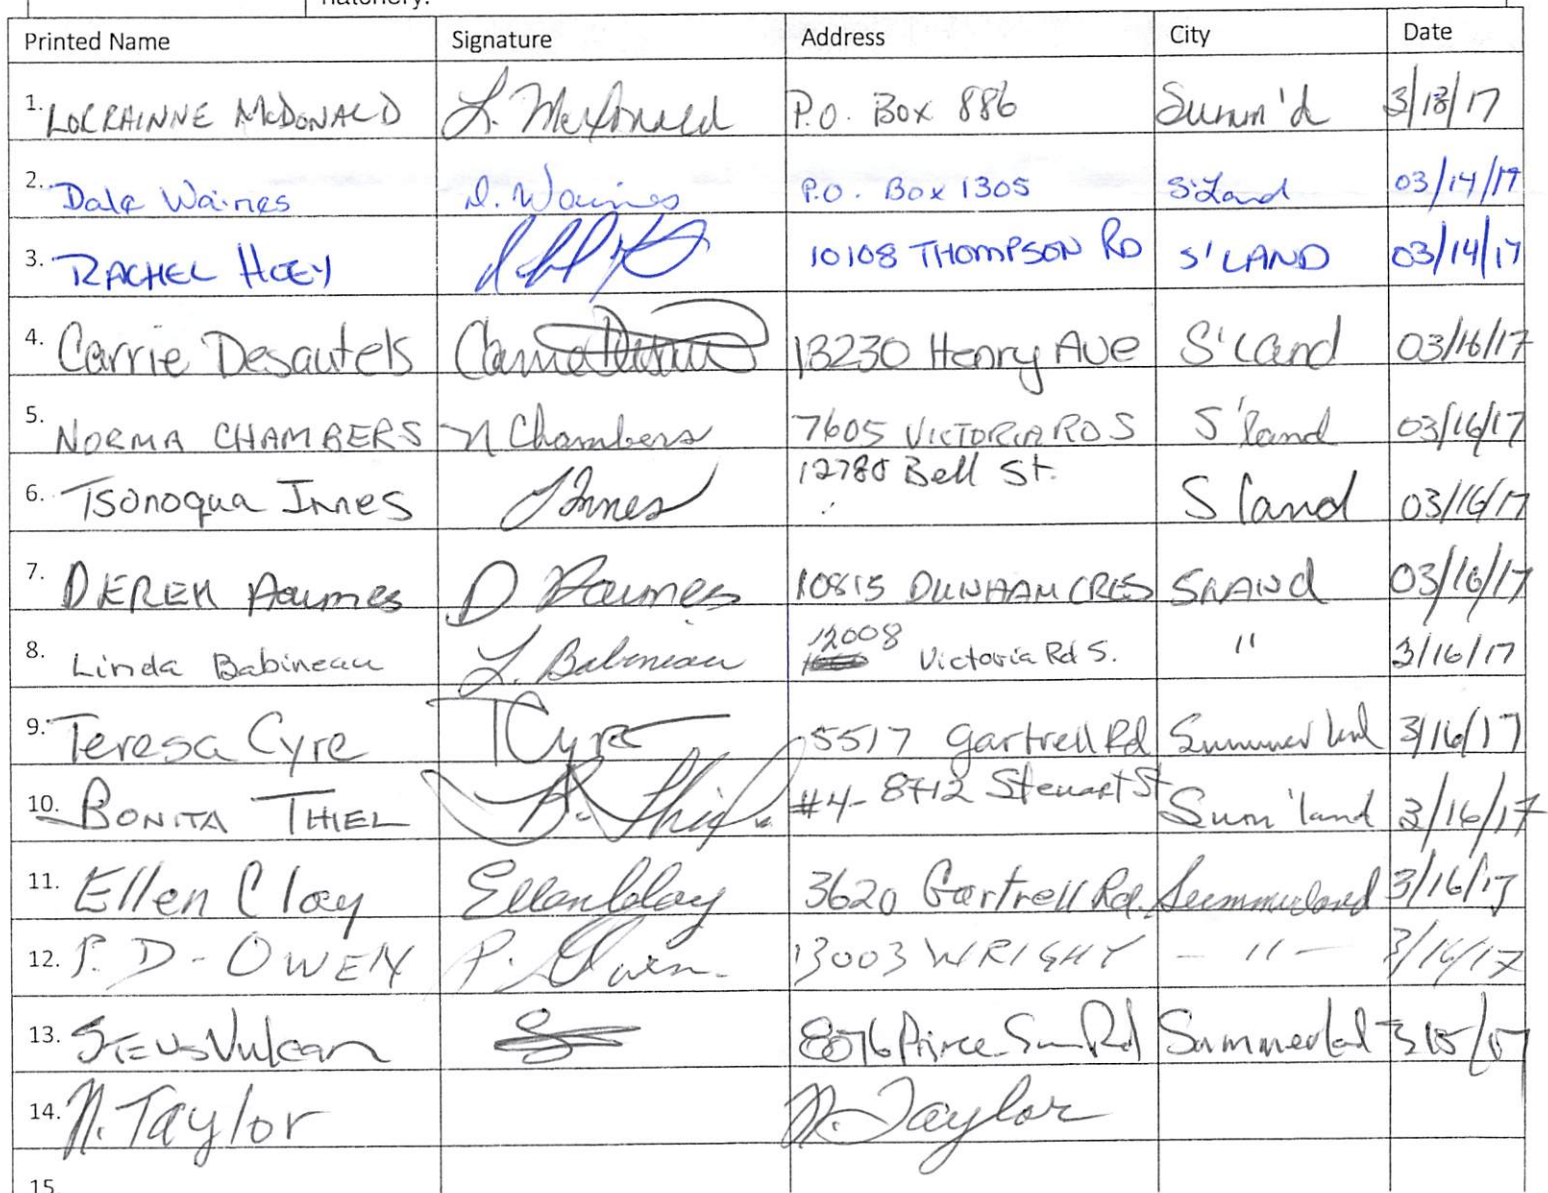 hatchery.
Printed Name Signature Address City Date
1. LORRAINNE McDONALD L. McDonald P.O. Box 886 Summ'd 3/13/17
2. Dale Waines D. Waines P.O. Box 1305 S'Land 03/14/17
3. RACHEL HOEY 10108 THOMPSON RD S'LAND 03/14/17
4. Carrie Desautels 13230 Henry Ave S'Land 03/16/17
5. NORMA CHAMBERS N Chambers 7605 VICTORIA RD S S'land 03/16/17
6. Tsonoqua Innes T Innes 12780 Bell St. S land 03/16/17
7. DEREK 10815 DUNHAM CRES SLAND 03/16/17
8. Linda Babineau L. Babineau 12008 Victoria Rd S. " 3/16/17
9. Teresa Cyre T Cyre 5517 Gartrell Rd Summerland 3/16/17
10. BONITA THIEL B. Thiel #4- 8712 Stewart St Sum'land 3/16/17
11. Ellen Clay Ellen Clay 3620 Gartrell Rd. Summerland 3/16/17
12. P. D. OWEN P. Owen 13003 WRIGHT - " - 3/16/17
13. Vulcan Rd Summerland
14. N. Taylor N. Taylor
15.